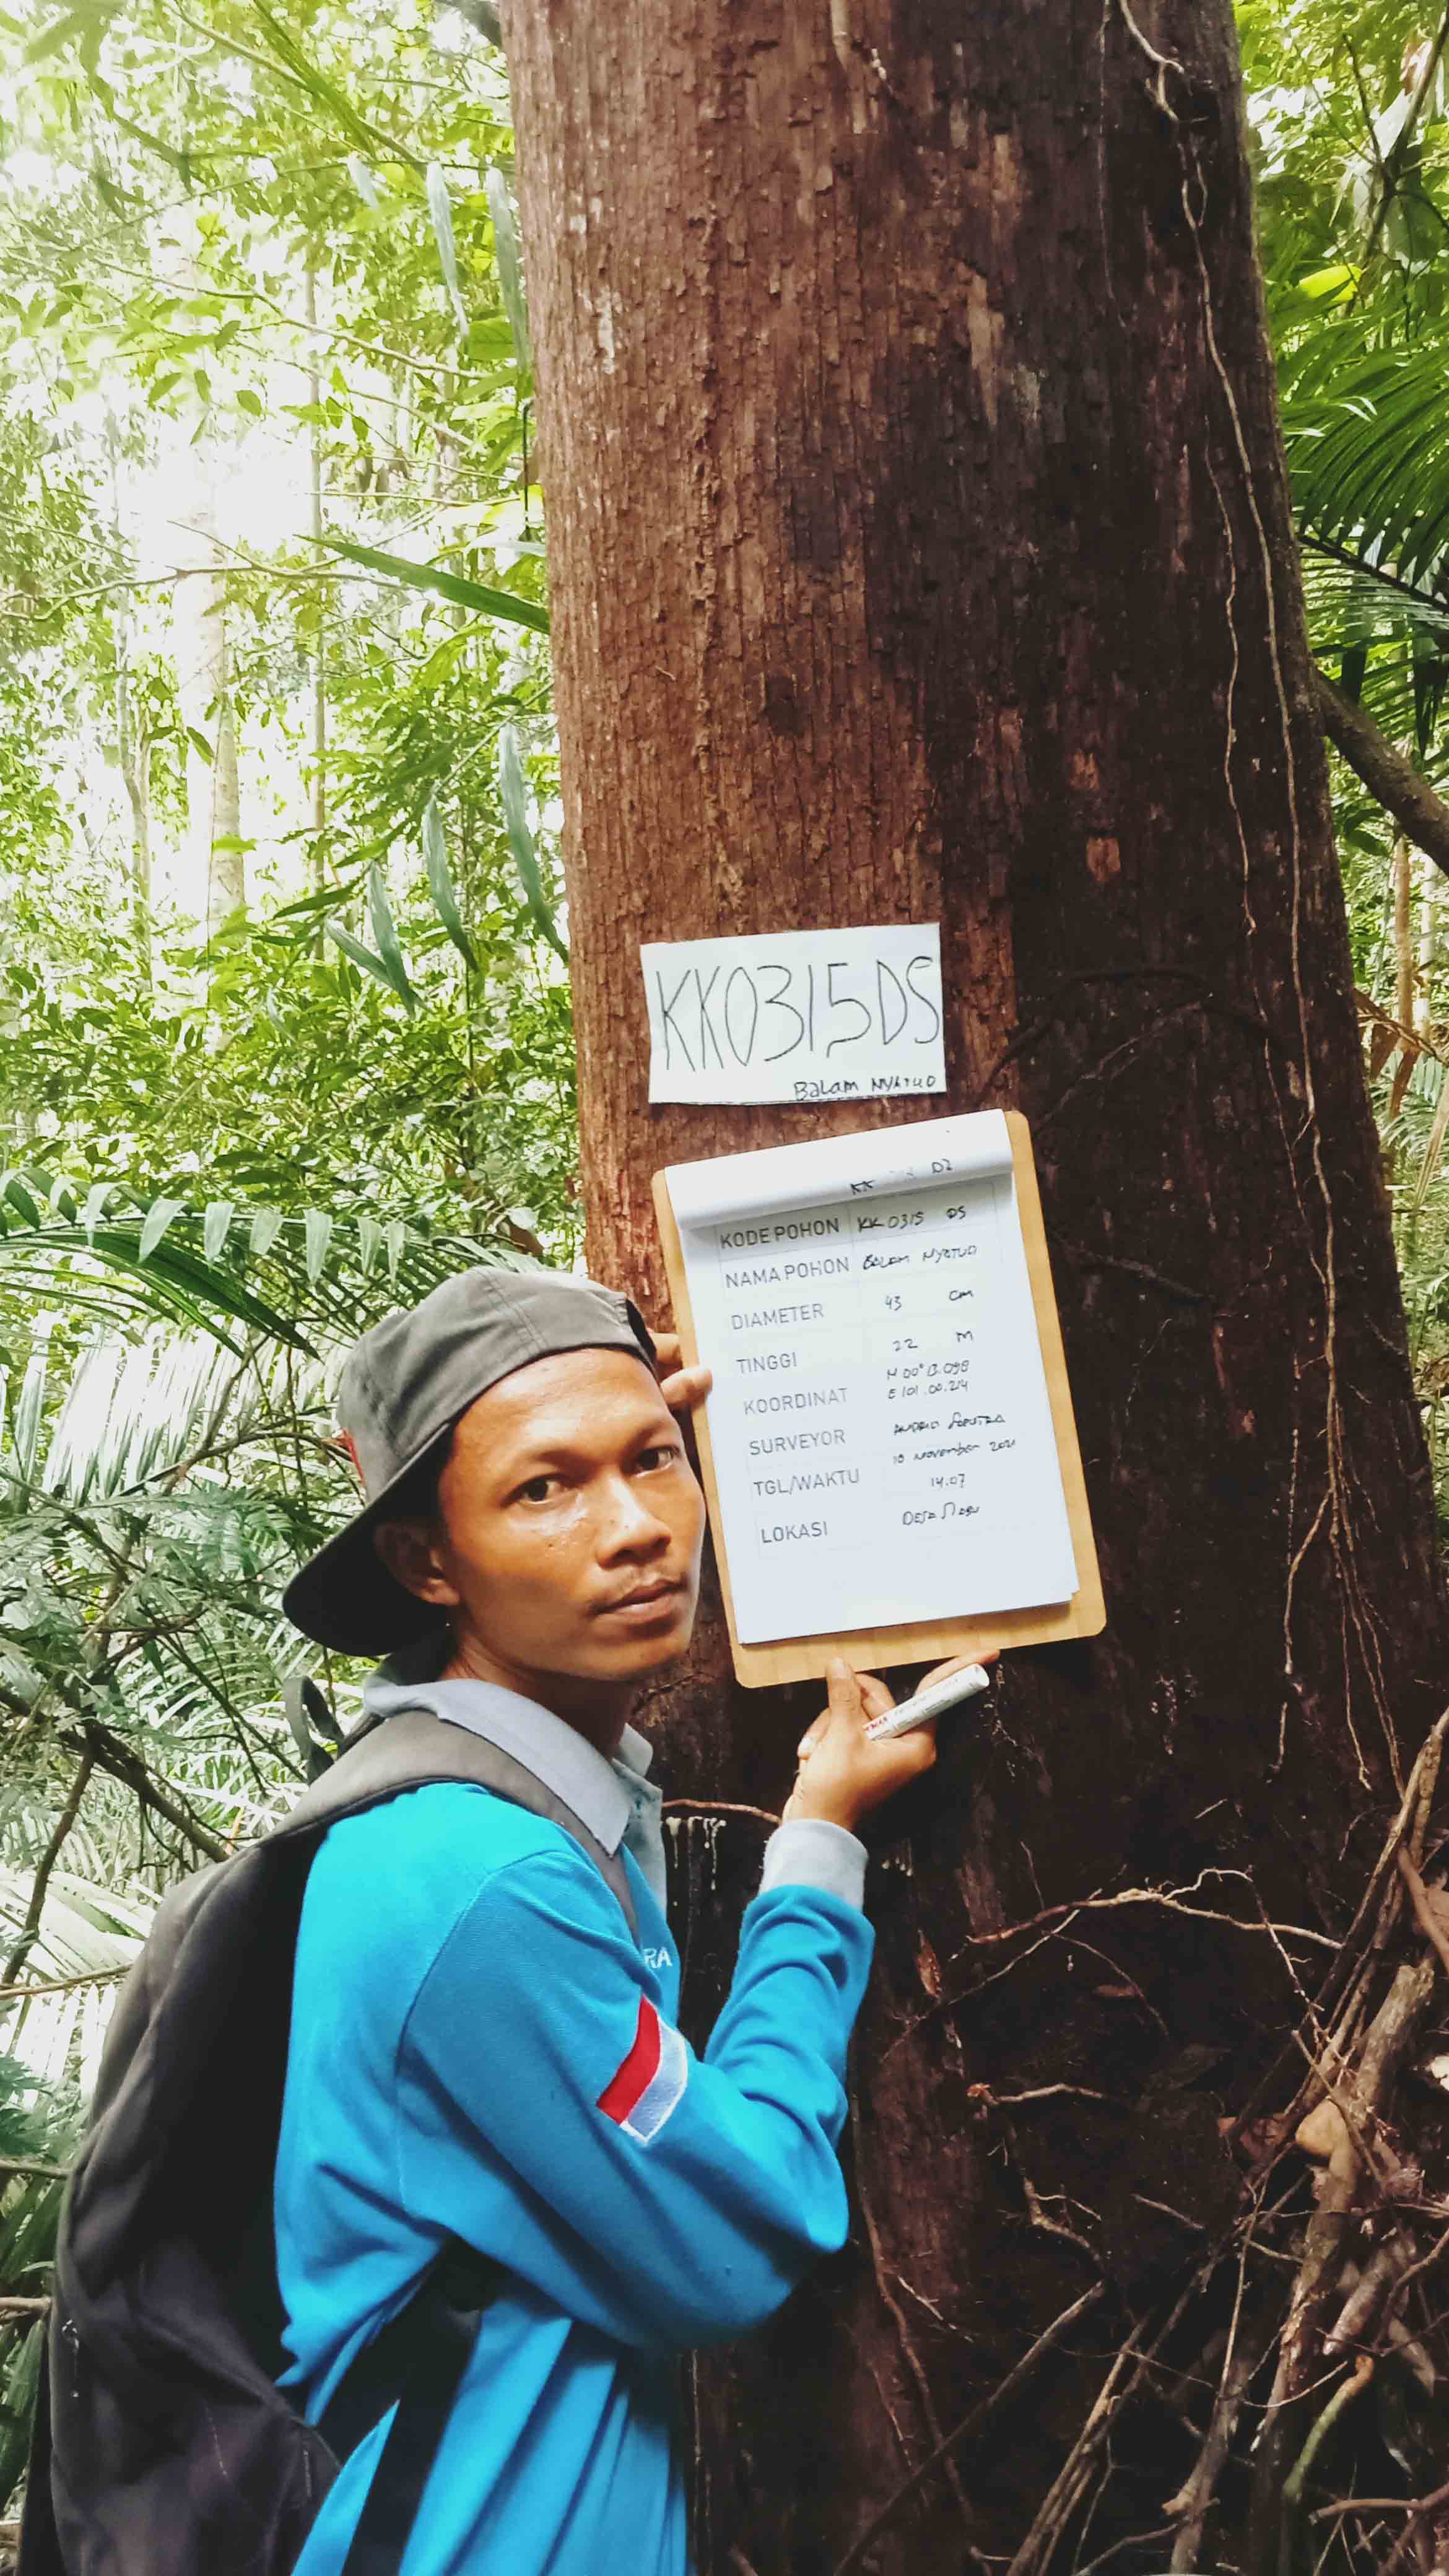 KK0315DS
Balam NYATUO
KK DZ
KODE POHON KK 0315 DS
NAMA POHON BALAM NYATUO
DIAMETER 43 cm
TINGGI 22 M
KOORDINAT N 00° 13.098
E 101.00.214
SURVEYOR ANDRIO SAPUTRA
TGL/WAKTU 10 November 2021
14.07
LOKASI DESA
RA